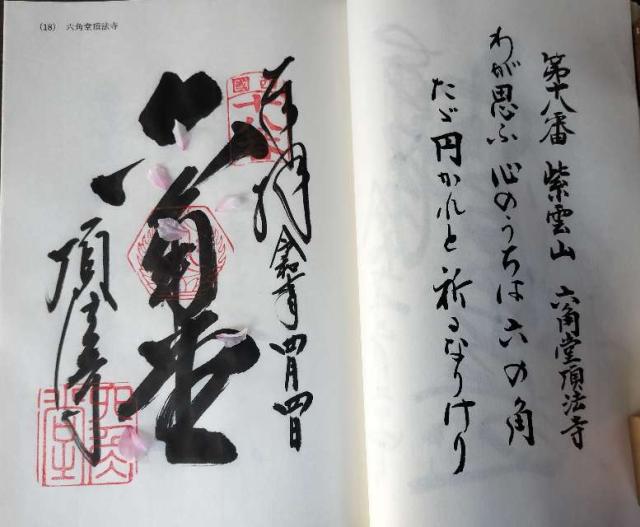 第十八番 紫雲山 六角堂頂法寺
わが思ふ 心のうちは 六の角
たゞ円かれと 祈るなりけり
(18) 六角堂頂法寺
奉拝 令和 年 四月四日
六角堂
頂法寺